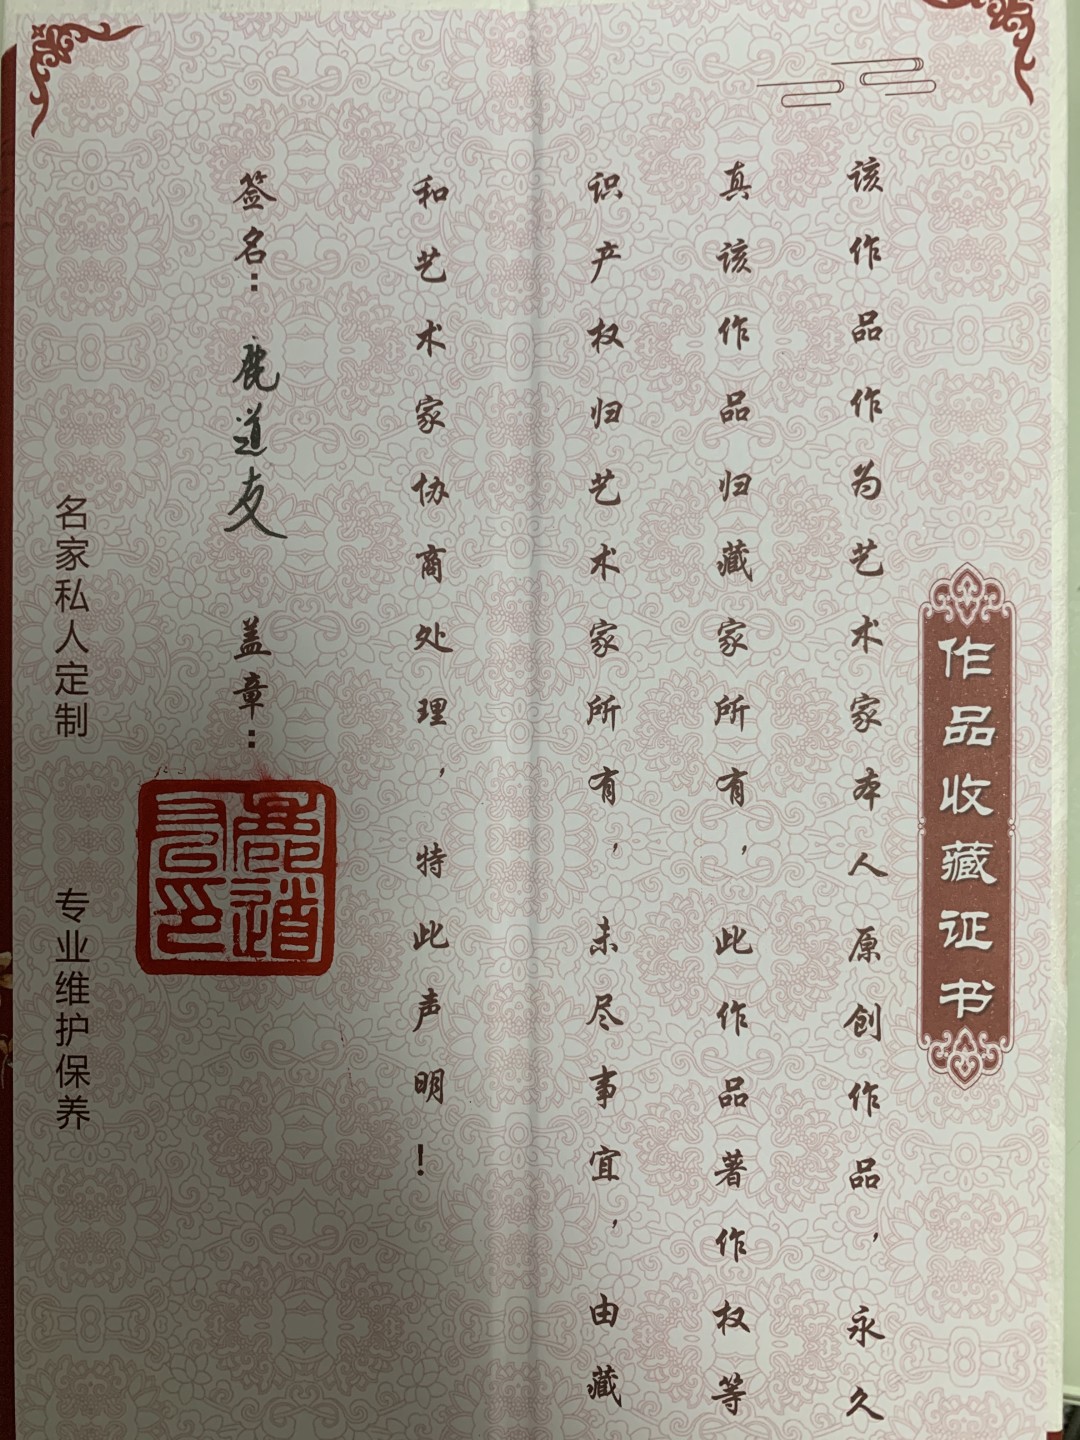 作品收藏证书
该作品作为艺术家本人原创作品，永久
真该作品归藏家所有，此作品著作权等
识产权归艺术家所有，未尽事宜，由藏
和艺术家协商处理，特此声明！
签名：鹿道友 盖章：
名家私人定制 专业维护保养